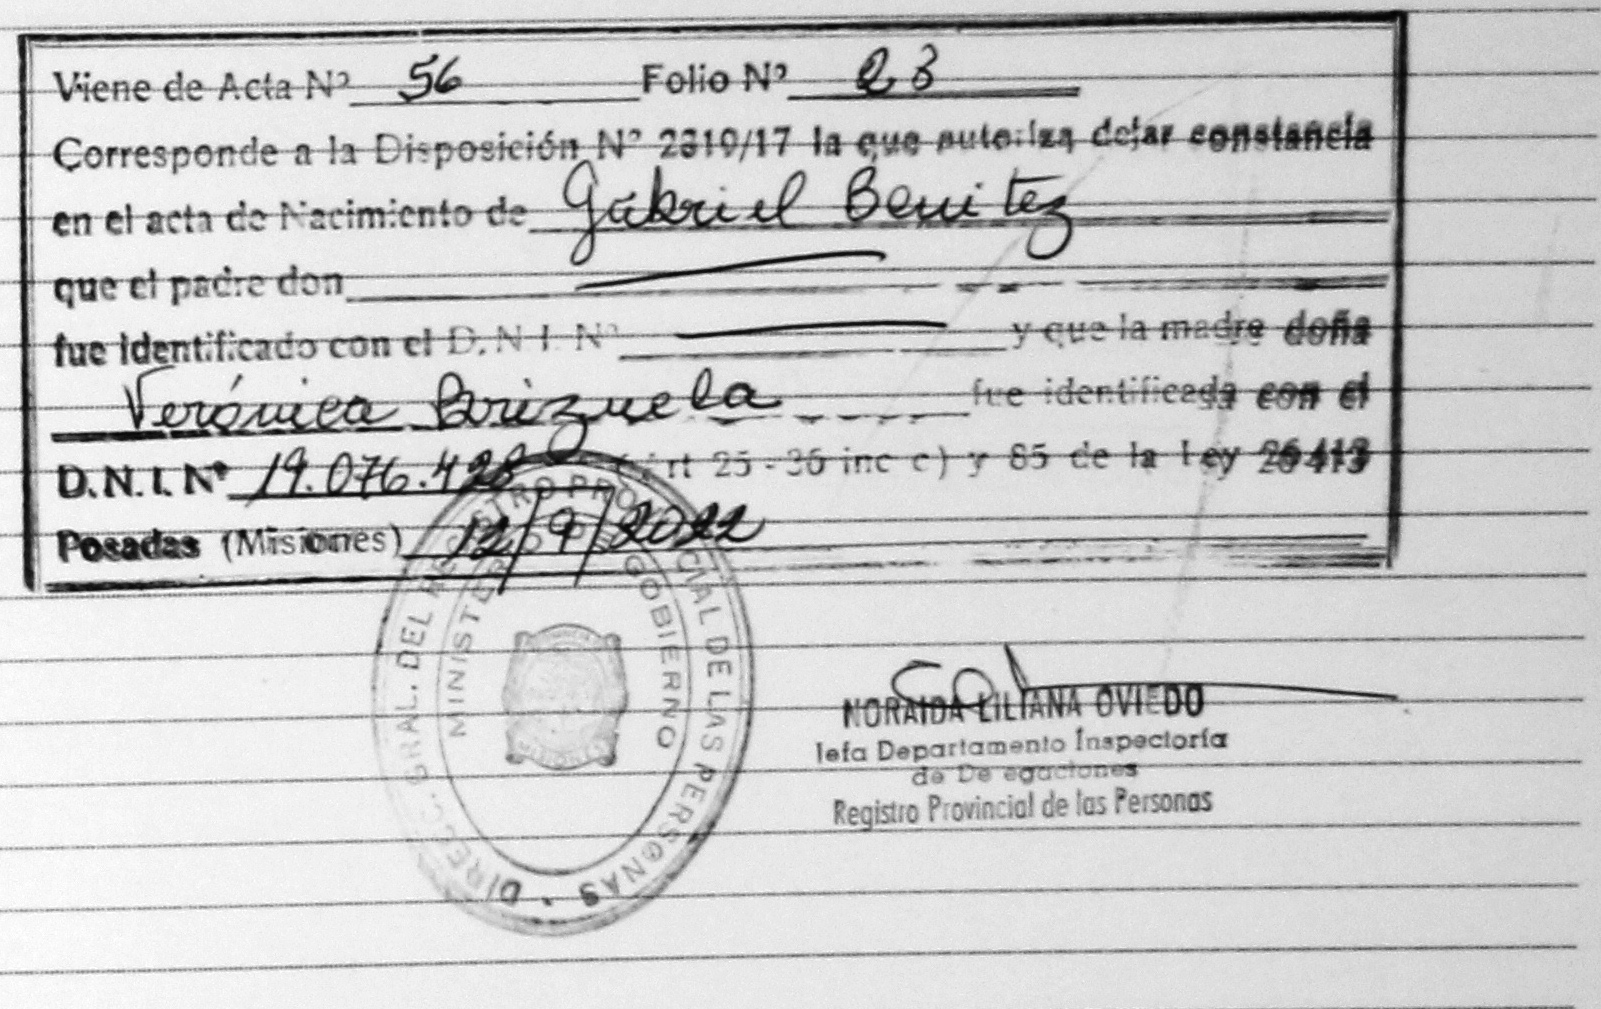 Viene de Acta Nº 56 Folio Nº 23
Corresponde a la Disposición Nº 2319/17 la que autoriza dejar constancia
en el acta de Nacimiento de Gabriel Benitez
que el padre don
fue identificado con el D.N.I. Nº y que la madre doña
Verónica Brizuela fue identificada con el
D.N.I. Nº 19.076.428 (Art 25 - 36 inc c) y 85 de la Ley 26413
Posadas (Misiones) 12/9/2022
DIRECC. GRAL. DEL REGISTRO PROVINCIAL DE LAS PERSONAS
MINISTERIO DE GOBIERNO
NORAIDA LILIANA OVIEDO
Jefa Departamento Inspectoría
de Delegaciones
Registro Provincial de las Personas